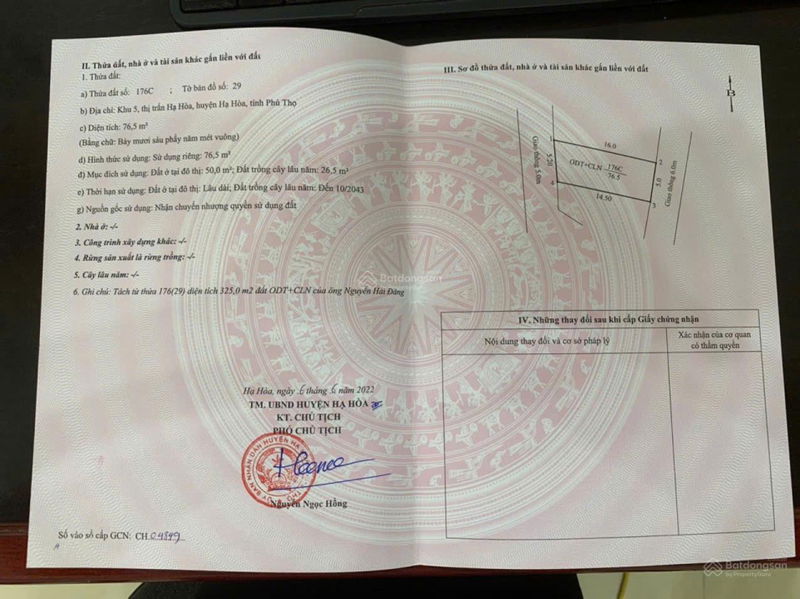 II. Thửa đất, nhà ở và tài sản khác gắn liền với đất
1. Thửa đất:
a) Thửa đất số: 176C ; Tờ bản đồ số: 29
b) Địa chỉ: Khu 5, thị trấn Hạ Hòa, huyện Hạ Hòa, tỉnh Phú Thọ
c) Diện tích: 76,5 m²
(Bằng chữ: Bảy mươi sáu phẩy năm mét vuông)
d) Hình thức sử dụng: Sử dụng riêng: 76,5 m²
đ) Mục đích sử dụng: Đất ở tại đô thị: 50,0 m²; Đất trồng cây lâu năm: 26,5 m²
e) Thời hạn sử dụng: Đất ở tại đô thị: Lâu dài; Đất trồng cây lâu năm: Đến 10/2043
g) Nguồn gốc sử dụng: Nhận chuyển nhượng quyền sử dụng đất
2. Nhà ở: -/-
3. Công trình xây dựng khác: -/-
4. Rừng sản xuất là rừng trồng: -/-
5. Cây lâu năm: -/-
6. Ghi chú: Tách từ thửa 176(29) diện tích 325,0 m2 đất ODT+CLN của ông Nguyễn Hải Đăng
Hạ Hòa, ngày 6 tháng 6 năm 2022
TM. UBND HUYỆN HẠ HÒA
KT. CHỦ TỊCH
PHÓ CHỦ TỊCH
ỦY BAN NHÂN DÂN HUYỆN HẠ
Nguyễn Ngọc Hồng
Số vào sổ cấp GCN: CH.04849
III. Sơ đồ thửa đất, nhà ở và tài sản khác gắn liền với đất
B
Giao thông 5.0m
1
16.0
2
5.20
ODT+CLN 176C
76.5
5.0
Giao thông 6.0m
4
14.50
3
IV. Những thay đổi sau khi cấp Giấy chứng nhận
Nội dung thay đổi và cơ sở pháp lý
Xác nhận của cơ quan
có thẩm quyền
Batdongsan
Batdongsan
by PropertyGuru